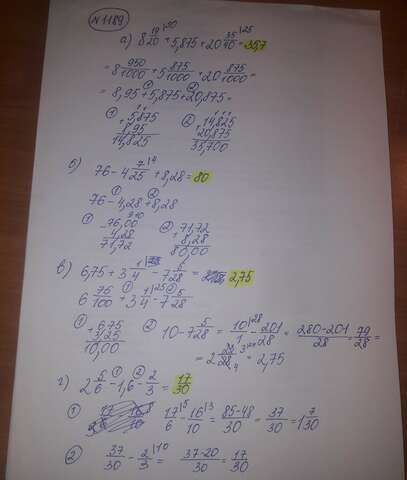 N 1189
а) 8 19/20 |50 + 5,875 + 20 35/40 |25 = 35,7
= 8 950/1000 + 5 875/1000 + 20 875/1000 =
= 8,95 + 5,875 + 20,875 =
① + 5,875 ② + 14,825
8,95 20,875
14,825 35,700
б) 76 - 4 7/25 |4 + 8,28 = 80
76 - 4,28 + 8,28
① - 76,00 ② + 71,72
4,28 8,28
71,72 80,00
в) 6,75 + 3 1/4 - 7 5/28 = 2,75
6 75/100 + 3 1/4 |25 - 7 5/28
① + 6,75 ② 10 - 7 5/28 = 10/1 |28 - 201/28 = 280-201/28 = 79/28 =
3,25
10,00
= 2 23/28 = 2,75
г) 2 5/6 - 1,6 - 2/3 = 17/30
① 17/6 |5 - 16/10 |3 = 85-48/30 = 37/30 = 1 7/30
② 37/30 - 2/3 |10 = 37-20/30 = 17/30